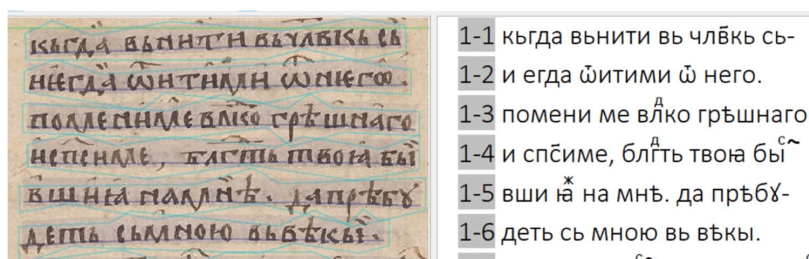 кьгда вьнити вь члв҃кь сь
и егда ѿитими ѿ него.
помени ме влⷣко грѣшнаго
и сп҃симе, блгⷣть твоꙗ бы
вши ꙗ на мнѣ. да прѣбꙋ
деть сь мною вь вѣкы.
1-1 кьгда вьнити вь члв҃кь сь-
1-2 и егда ѿитими ѿ него.
1-3 помени ме влⷣко грѣшнаго
1-4 и сп҃симе, блгⷣть твоꙗ быⷭ҇
1-5 вши ꙗⷤ на мнѣ. да прѣбꙋ-
1-6 деть сь мною вь вѣкы.